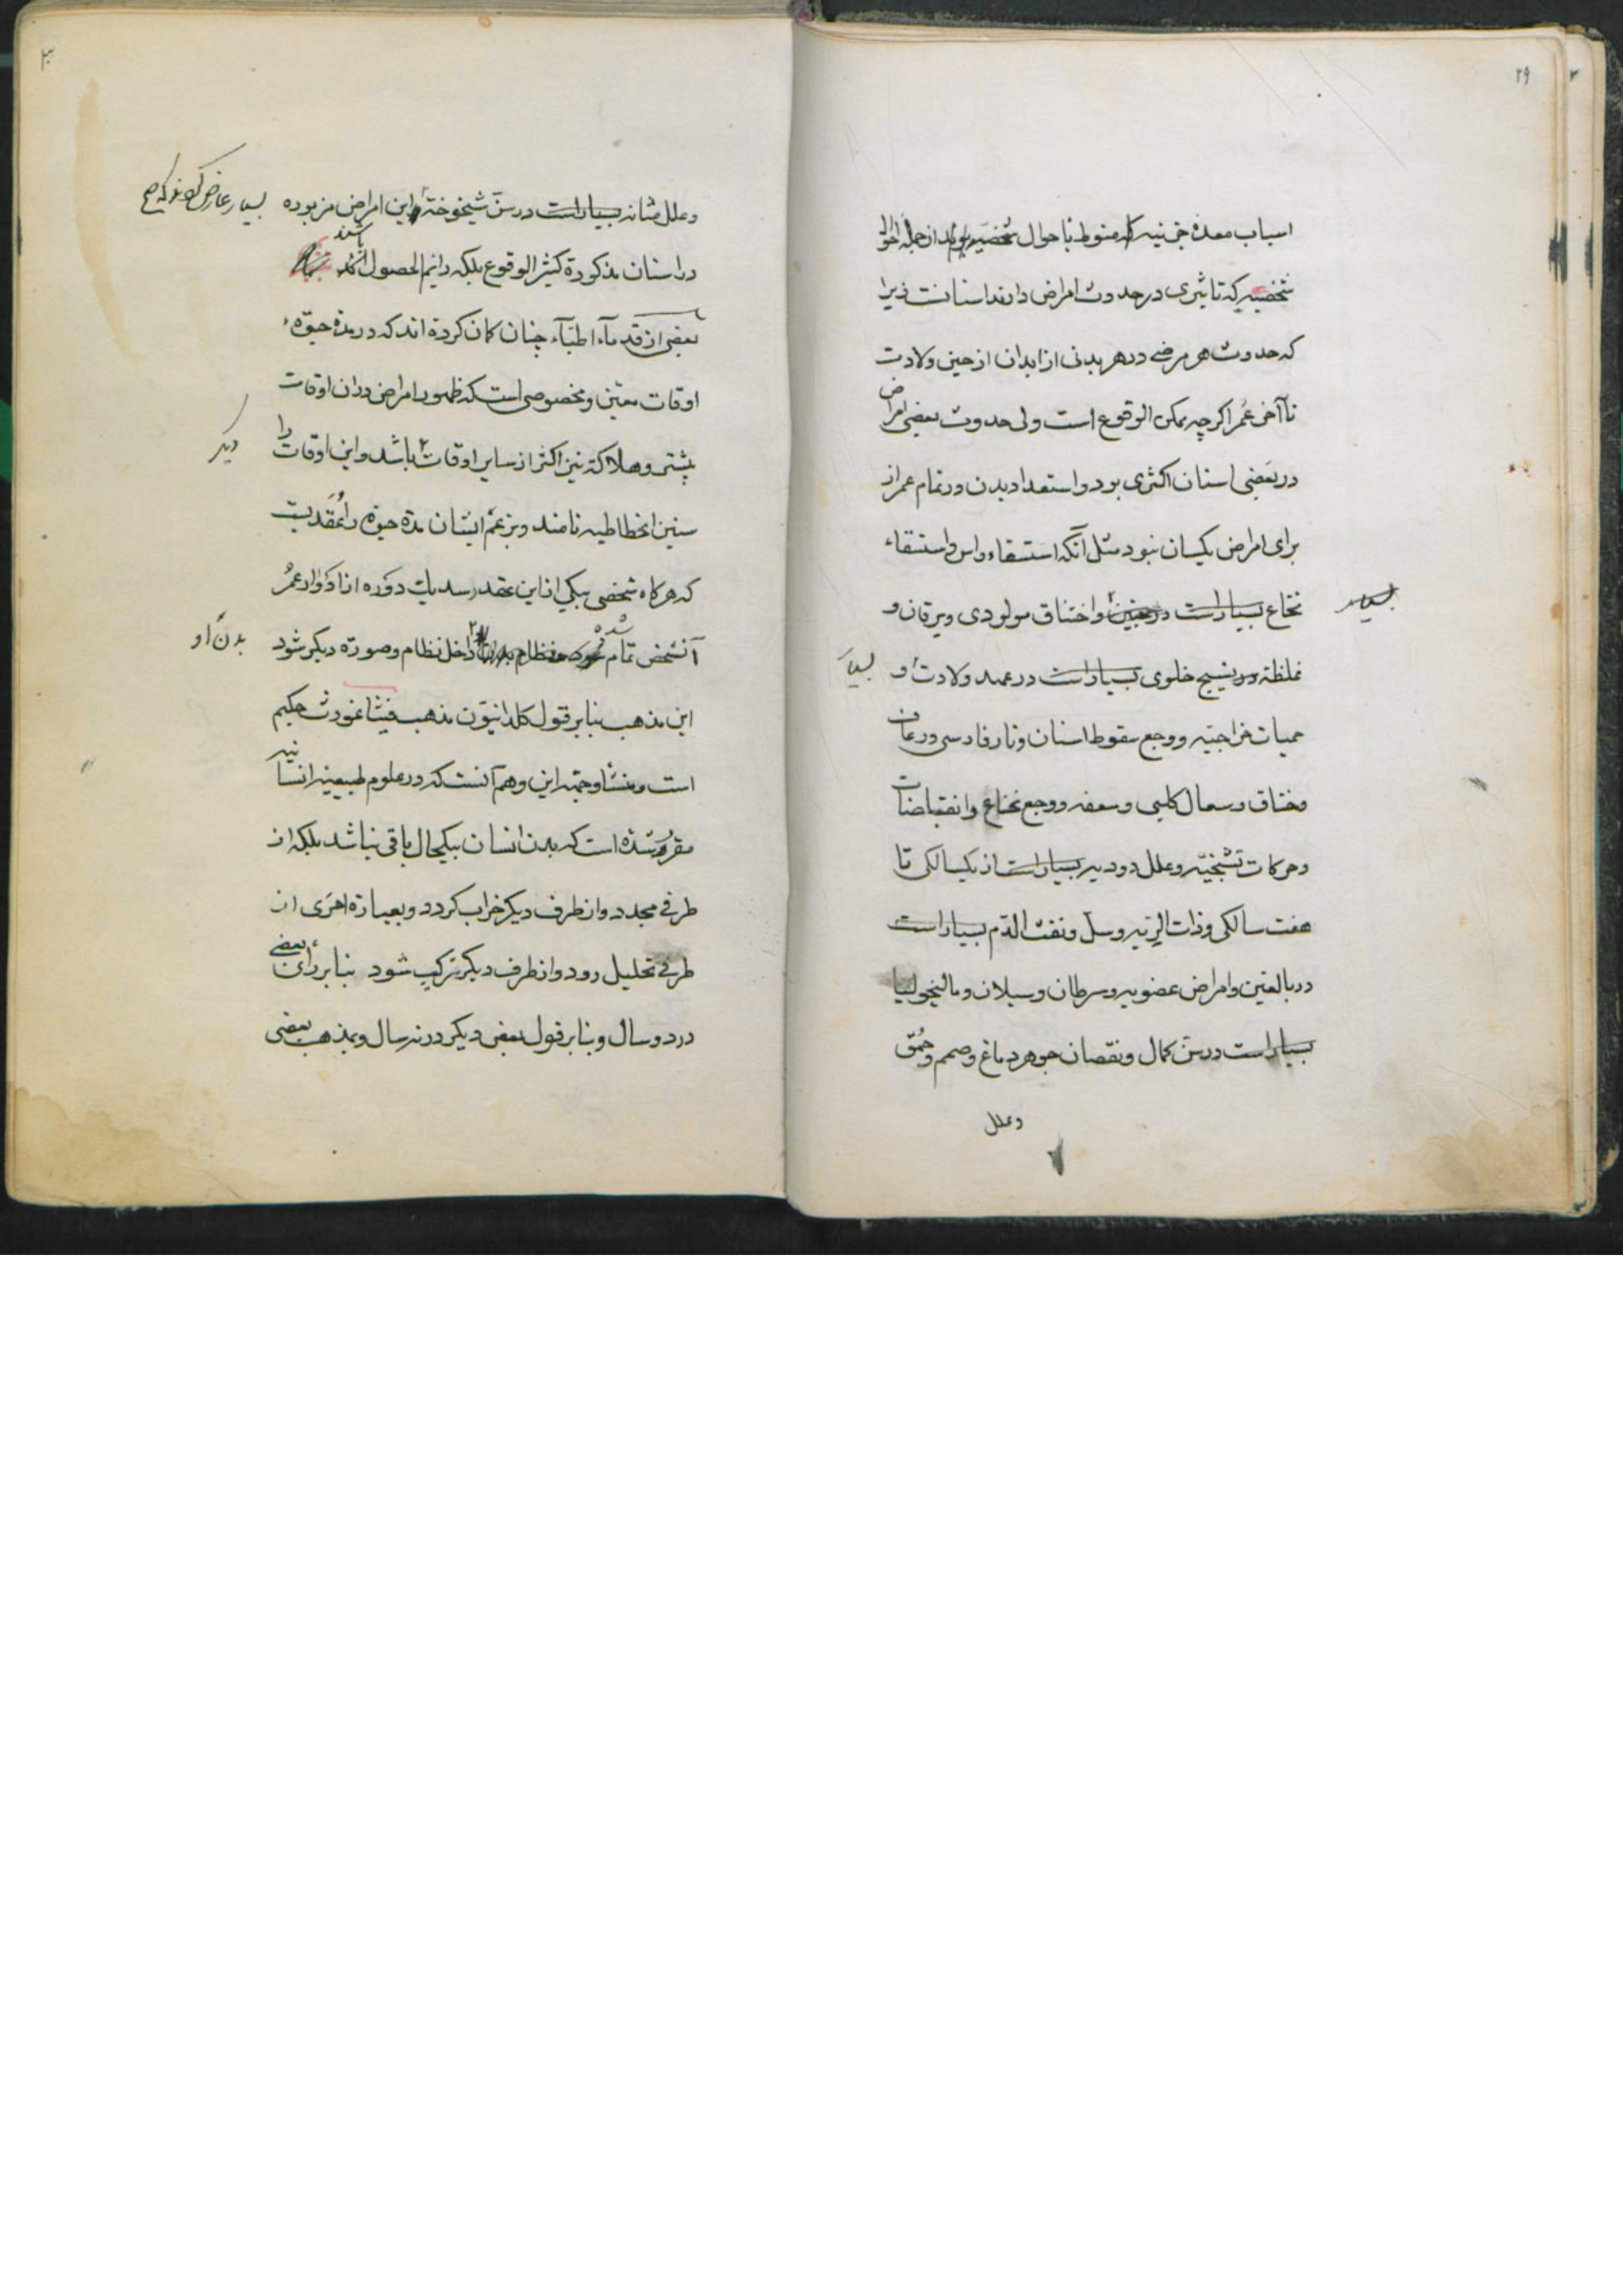 ۲۹
اسباب معده جزئیه که منوط باحوال شخصیه از جمله احوال
شخصیه که تاثیری در حدوث امراض دارند اسنانست زیرا
که حدوث هر مرضی در هر بدنی از ابدان از حین ولادت
تا آخر عمر اگرچه ممکن الوقوع است ولی حدوث بعضی امراض
در بعضی اسنان اکثری بود و استعداد بدن در تمام عمر از
برای امراض یکسان نبود مثل آنکه استسقاء راس و استسقاء
نخاع بسیار است در جنین و اختناق مولودی و یرقان و
بسیار
غلظة نسیج خلوی بسیار است در عهد ولادت و
بسیار
حمیات خراجیه و وجع سقوط اسنان و نار فارسی و رعاف
و خناق و سعال کلبی و سعفه و وجع نخاع و انقباضات
و حرکات تشنجیه و علل دودیه بسیار است از یکسالگی تا
هفت سالگی و ذات الریه و سل و نفث الدم بسیار است
در بالغین و امراض عضویه و سرطان و سیلان و مالیخولیا
بسیار است در سن کمال و نقصان جوهر دماغ و صمم و حمق
و علل
۳۰
و علل مثانه بسیار است در سن شیخوخة این امراض مزبوره
بسیار عارض
در اسنان مذکورة کثیر الوقوع بلکه دائم الحصول
باشند
بعضی از قدماء اطباء چنان کمان کردة اند که در مدة حیوة
اوقات معین و مخصوصی است که ظهور امراض در ان اوقات
بیشتر و هلاکت نیز اکثر از سایر اوقات باشد و این اوقات را
دیگر
سنین انحطاطیه نامند و بزعم ایشان مدة حیوة را عقدیست
که هرکاه شخصی بیکی از این عقد رسد یک دوره از ادوار عمر
آنشخص تمام شده داخل نظام و صورة دیکر شود
بدن او
این مذهب بنابر قول کلدانیون مذهب فیثاغورث حکیم
است و منشأ و جهة این وهم آنست که در علوم طبیعیه انسانیه
مقرر شده است که بدن انسان بیکحال باقی نباشد بلکه از
طرفی مجدد و از طرف دیکر خراب کردد و بعبارة اخری از
طرفی تحلیل رود و از طرف دیکر ترکیب شود بنابر رای بعضی
در دو سال و بنابر قول بعض دیکر در نه سال و بمذهب بعضی